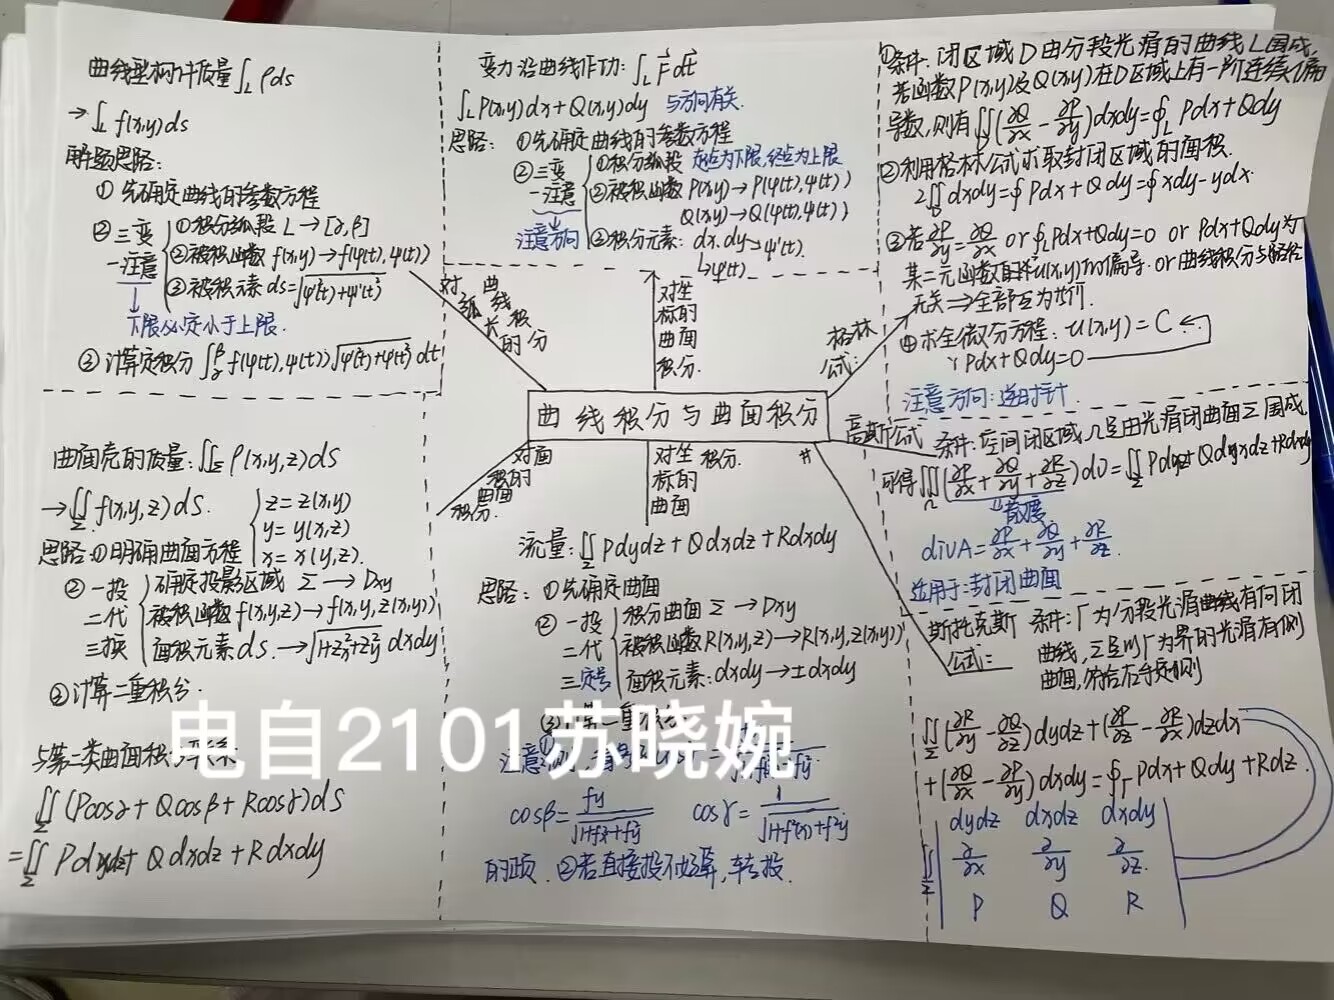 曲线型构件质量∫_L ρds
→∫_L f(x,y)ds
解题思路:
①先确定曲线的参数方程
②三变
一注意
①积分弧段 L→[α,β]
②被积函数 f(x,y)→f(φ(t),ψ(t))
③被积元素 ds=√(φ'²(t)+ψ'²(t))
下限必定小于上限.
③计算定积分
变力沿曲线作功:∫_L F⃗ dr⃗
∫_L P(x,y)dx+Q(x,y)dy 与方向有关.
思路: ①先确定曲线的参数方程
②三变
一注意
注意方向
①积分弧段 起点为下限,终点为上限
②被积函数 P(x,y)→P(φ(t),ψ(t))
Q(x,y)→Q(φ(t),ψ(t))
③积分元素: dx.dy→ψ'(t).
↳φ'(t)
①条件:闭区域D由分段光滑的曲线L围成,
若函数P(x,y)及Q(x,y)在D区域上有一阶连续偏
导数,则有∬_D(∂Q/∂x-∂P/∂y)dxdy=∮_L Pdx+Qdy
②利用格林公式求取封闭区域的面积.
2∬_D dxdy=∮Pdx+Qdy=∮xdy-ydx.
③若∂P/∂y=∂Q/∂x or ∮_L Pdx+Qdy=0 or Pdx+Qdy为
某二元函数 u(x,y)的偏导. or 曲线积分与路径
无关⇒全部互为
④求全微分方程: u(x,y)=C
Pdx+Qdy=0
注意方向:逆时针.
对弧长的曲线积分
对坐标的曲面积分.
格林公式:
曲线积分与曲面积分
高斯公式
对面积的曲面积分.
对坐标的曲面积分.
条件:空间闭区域Ω是由光滑闭曲面Σ围成,
可得∭_Ω(∂P/∂x+∂Q/∂y+∂R/∂z)dv=∬_Σ Pdydz+Qdxdz+Rdxdy
散度
divA=∂P/∂x+∂Q/∂y+∂R/∂z.
适用于:封闭曲面
斯托克斯公式:
条件:Γ为分段光滑曲线有向闭
曲线,Σ是以Γ为界的光滑有侧
曲面,符合右手定则
∬_Σ(∂R/∂y-∂Q/∂z)dydz+(∂P/∂z-∂R/∂x)dzdx
+(∂Q/∂x-∂P/∂y)dxdy=∮_Γ Pdx+Qdy+Rdz.
∬_Σ | dydz dxdz dxdy |
| ∂/∂x ∂/∂y ∂/∂z |
| P Q R |
曲面壳的质量:∬_Σ ρ(x,y,z)dS
→∬_Σ f(x,y,z)dS.
z=z(x,y)
y=y(x,z)
x=x(y,z).
思路:①明确曲面方程
②一投
二代
三换
确定投影区域 Σ→Dxy
被积函数f(x,y,z)→f(x,y,z(x,y))
面积元素dS.→√(1+z²x+z²y) dxdy
③计算二重积分.
与第二类曲面积分
∬_Σ(Pcosα+Qcosβ+Rcosγ)dS
=∬_Σ Pdydz+Qdxdz+Rdxdy
流量:∬_Σ Pdydz+Qdxdz+Rdxdy
思路: ①先确定曲面
②一投
二代
三定号
积分曲面 Σ→Dxy
被积函数R(x,y,z)→R(x,y,z(x,y))
面积元素:dxdy→±dxdy
电自2101苏晓婉
注意
cosβ=fy/√(1+f²x+f²y) cosγ=1/√(1+f²(x)+f²y)
的正负. ②若直接投不好算,转投.